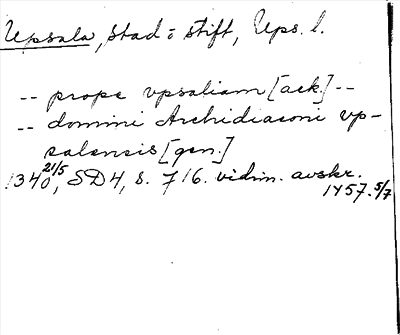 Upsala, stad o stift, Ups. l.
-- prope vpsaliam [ack.] --
-- domini Archidiaconi vp-
salensis [gen.]
1340 21/5, SD4, s. 716. vidim. avskr.
1457. 5/7